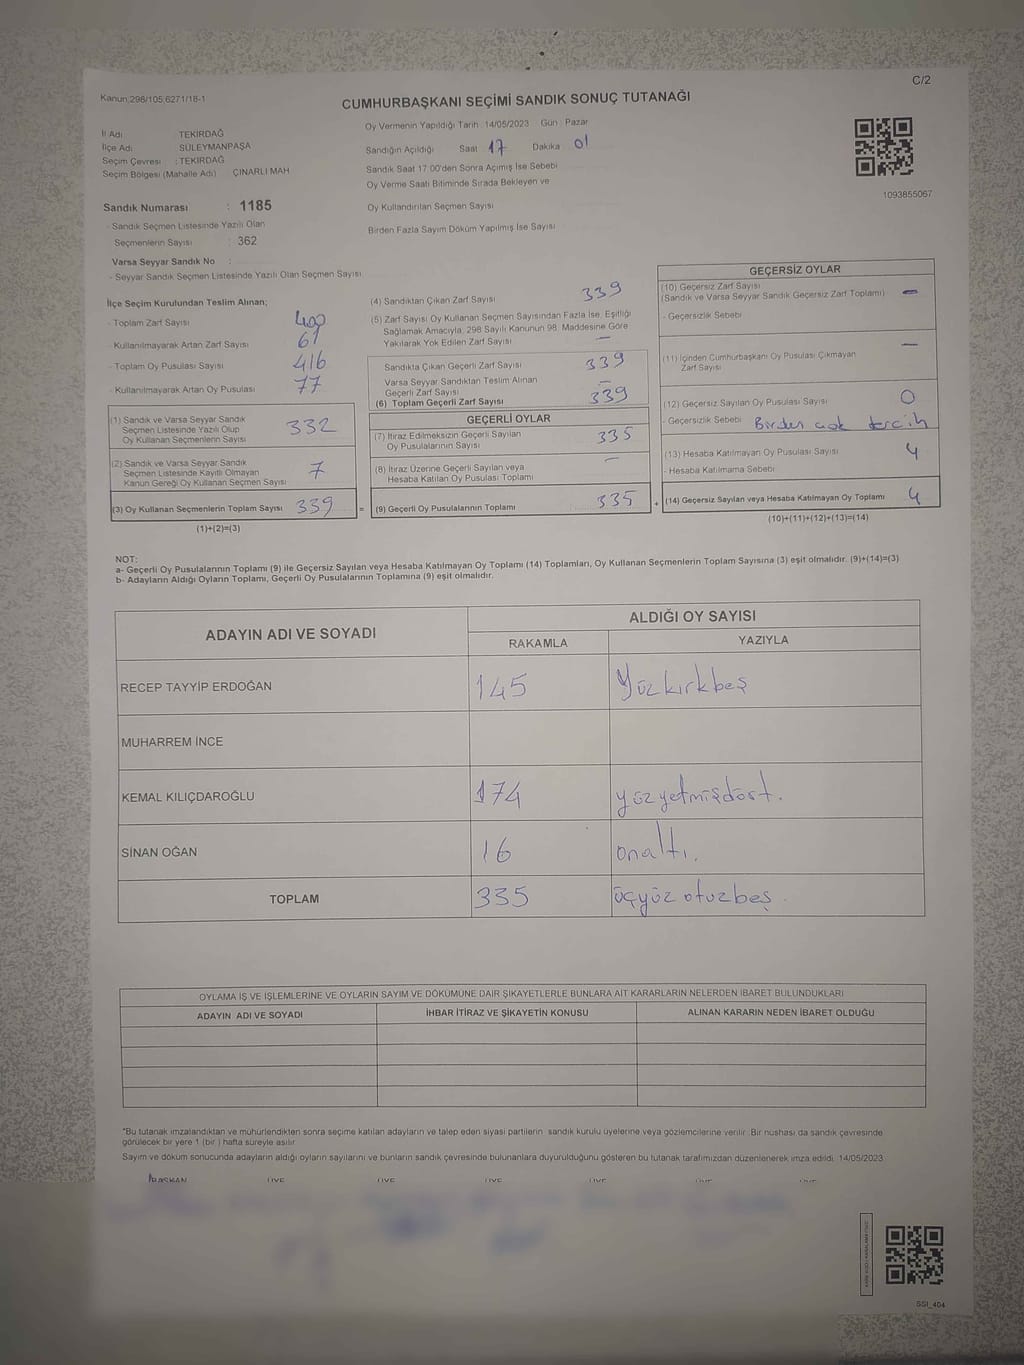 C/2
Kanun:298/105,6271/18-1
CUMHURBAŞKANI SEÇİMİ SANDIK SONUÇ TUTANAĞI
İl Adı TEKİRDAĞ
İlçe Adı SÜLEYMANPAŞA
Seçim Çevresi : TEKİRDAĞ
Seçim Bölgesi (Mahalle Adı) ÇINARLI MAH
Oy Vermenin Yapıldığı Tarih : 14/05/2023 Gün : Pazar
Sandığın Açıldığı Saat 17 Dakika 01
Sandık Saat 17:00'den Sonra Açımış İse Sebebi
Oy Verme Saati Bitiminde Sırada Bekleyen ve
Oy Kullandırılan Seçmen Sayısı
Birden Fazla Sayım Döküm Yapılmış İse Sayısı
1093855067
Sandık Numarası : 1185
- Sandık Seçmen Listesinde Yazılı Olan
Seçmenlerin Sayısı : 362
Varsa Seyyar Sandık No :
- Seyyar Sandık Seçmen Listesinde Yazılı Olan Seçmen Sayısı
İlçe Seçim Kurulundan Teslim Alınan;
- Toplam Zarf Sayısı 400
- Kullanılmayarak Artan Zarf Sayısı 61
- Toplam Oy Pusulası Sayısı 416
- Kullanılmayarak Artan Oy Pusulası 77
(1) Sandık ve Varsa Seyyar Sandık
Seçmen Listesinde Yazılı Olup
Oy Kullanan Seçmenlerin Sayısı 332
(2) Sandık ve Varsa Seyyar Sandık
Seçmen Listesinde Kayıtlı Olmayan
Kanun Gereği Oy Kullanan Seçmen Sayısı 7
(3) Oy Kullanan Seçmenlerin Toplam Sayısı 339
(1)+(2)=(3)
(4) Sandıktan Çıkan Zarf Sayısı 339
(5) Zarf Sayısı Oy Kullanan Seçmen Sayısından Fazla İse, Eşitliği
Sağlamak Amacıyla, 298 Sayılı Kanunun 98. Maddesine Göre
Yakılarak Yok Edilen Zarf Sayısı —
Sandıkta Çıkan Geçerli Zarf Sayısı 339
Varsa Seyyar Sandıktan Teslim Alınan
Geçerli Zarf Sayısı —
(6) Toplam Geçerli Zarf Sayısı 339
GEÇERLİ OYLAR
(7) İtiraz Edilmeksizin Geçerli Sayılan
Oy Pusulalarının Sayısı 335
(8) İtiraz Üzerine Geçerli Sayılan veya
Hesaba Katılan Oy Pusulası Toplamı —
= (9) Geçerli Oy Pusulalarının Toplamı 335 +
GEÇERSİZ OYLAR
(10) Geçersiz Zarf Sayısı
(Sandık ve Varsa Seyyar Sandık Geçersiz Zarf Toplamı) —
- Geçersizlik Sebebi
(11) İçinden Cumhurbaşkanı Oy Pusulası Çıkmayan
Zarf Sayısı —
(12) Geçersiz Sayılan Oy Pusulası Sayısı 0
- Geçersizlik Sebebi Birden çok tercih
(13) Hesaba Katılmayan Oy Pusulası Sayısı 4
- Hesaba Katılmama Sebebi
(14) Geçersiz Sayılan veya Hesaba Katılmayan Oy Toplamı 4
(10)+(11)+(12)+(13)=(14)
NOT:
a- Geçerli Oy Pusulalarının Toplamı (9) ile Geçersiz Sayılan veya Hesaba Katılmayan Oy Toplamı (14) Toplamları, Oy Kullanan Seçmenlerin Toplam Sayısına (3) eşit olmalıdır. (9)+(14)=(3)
b- Adayların Aldığı Oyların Toplamı, Geçerli Oy Pusulalarının Toplamına (9) eşit olmalıdır.
ADAYIN ADI VE SOYADI
ALDIĞI OY SAYISI
RAKAMLA YAZIYLA
RECEP TAYYİP ERDOĞAN 145 Yüzkırkbeş
MUHARREM İNCE
KEMAL KILIÇDAROĞLU 174 yüzyetmişdört.
SİNAN OĞAN 16 onaltı.
TOPLAM 335 üçyüz otuzbeş
OYLAMA İŞ VE İŞLEMLERİNE VE OYLARIN SAYIM VE DÖKÜMÜNE DAİR ŞİKAYETLERLE BUNLARA AİT KARARLARIN NELERDEN İBARET BULUNDUKLARI
ADAYIN ADI VE SOYADI İHBAR İTİRAZ VE ŞİKAYETİN KONUSU ALINAN KARARIN NEDEN İBARET OLDUĞU
*Bu tutanak imzalandıktan ve mühürlendikten sonra seçime katılan adayların ve talep eden siyasi partilerin sandık kurulu üyelerine veya gözlemcilerine verilir. Bir nüshası da sandık çevresinde
görülecek bir yere 1 (bir ) hafta süreyle asılır.
Sayım ve döküm sonucunda adayların aldığı oyların sayılarını ve bunların sandık çevresinde bulunanlara duyurulduğunu gösteren bu tutanak tarafımızdan düzenlenerek imza edildi. 14/05/2023
BAŞKAN ÜYE ÜYE ÜYE ÜYE ÜYE ÜYE
SSI_404